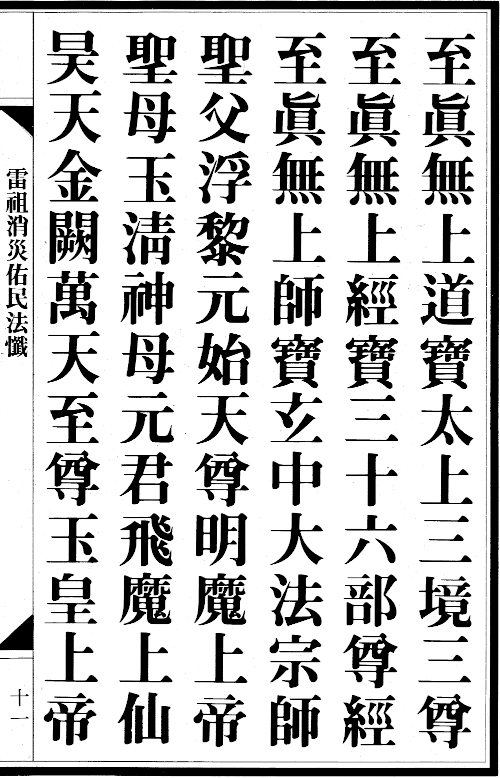 至眞無上道寶太上三境三尊
至眞無上經寶三十六部尊經
至眞無上師寶玄中大法宗師
聖父浮黎元始天尊明魔上帝
聖母玉淸神母元君飛魔上仙
昊天金闕萬天至尊玉皇上帝
雷祖消災佑民法懺
十一